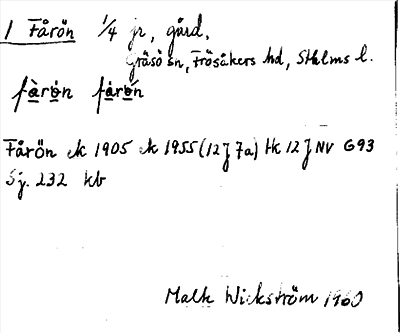 1 Fårön 1/4 jr, gård,
Gräsö sn, Frösåkers hd, Sthlms l.
fàrǿn fárǿn
Fårön ek 1905 ek 1955 (12J 7a) Hk 12 J NV G93
Sj. 232 kb
Malk Wickström 1960